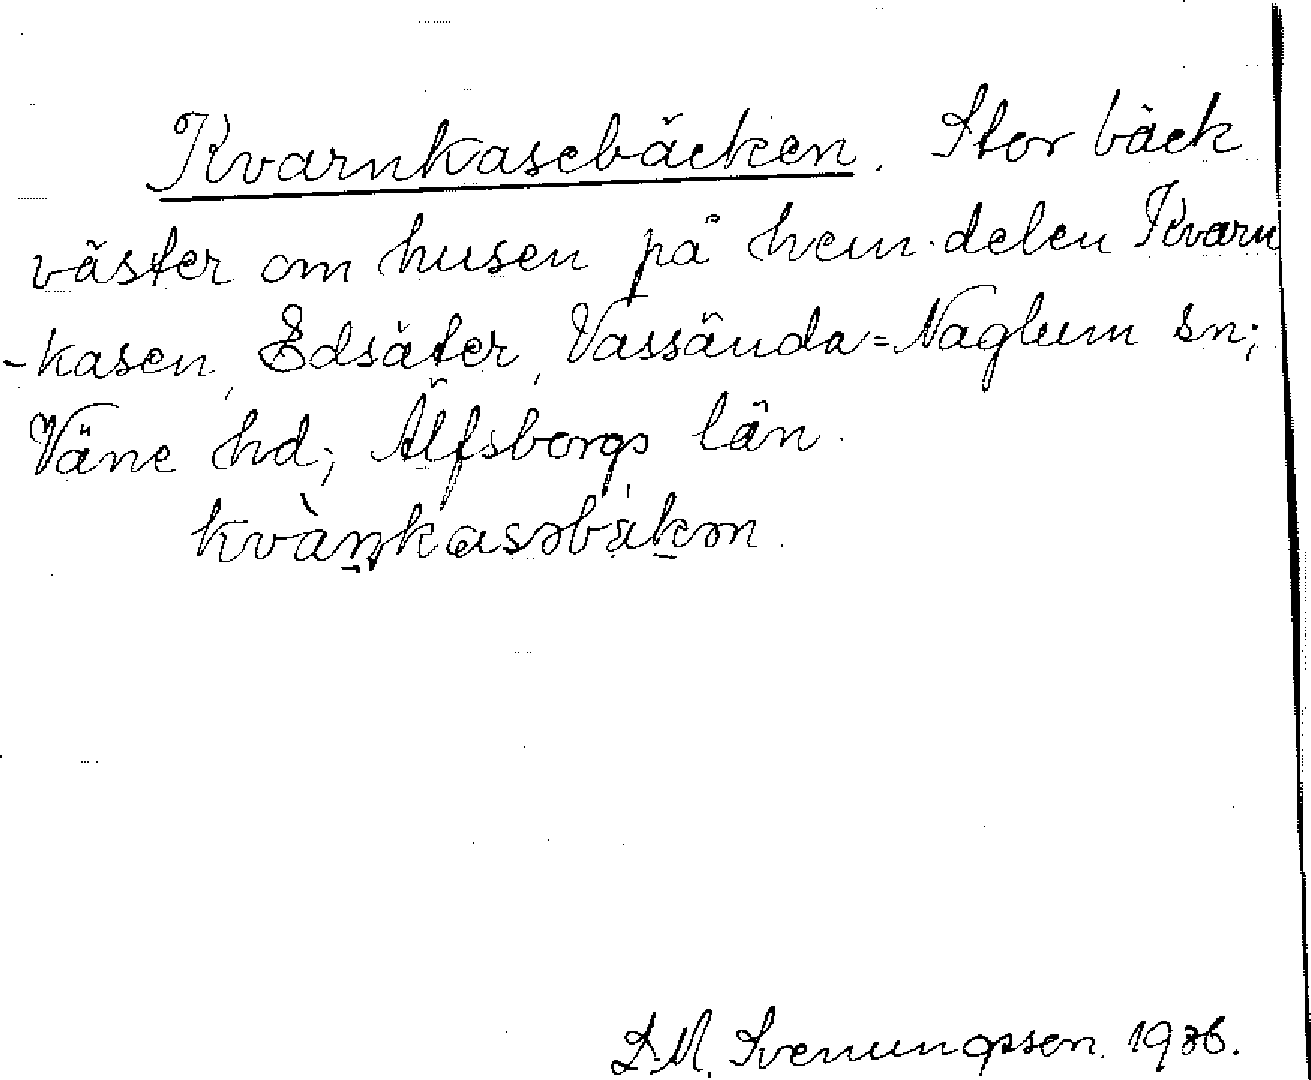 Kvarnkasebäcken. Stor bäck
väster om husen på hem.delen Kvarn
-kasen, Edsäter, Vassända=Naglum sn;
Väne hd; Älfsborgs län.
kvàn̠kasəbäkən.
D.M. Svenungsson. 1936.